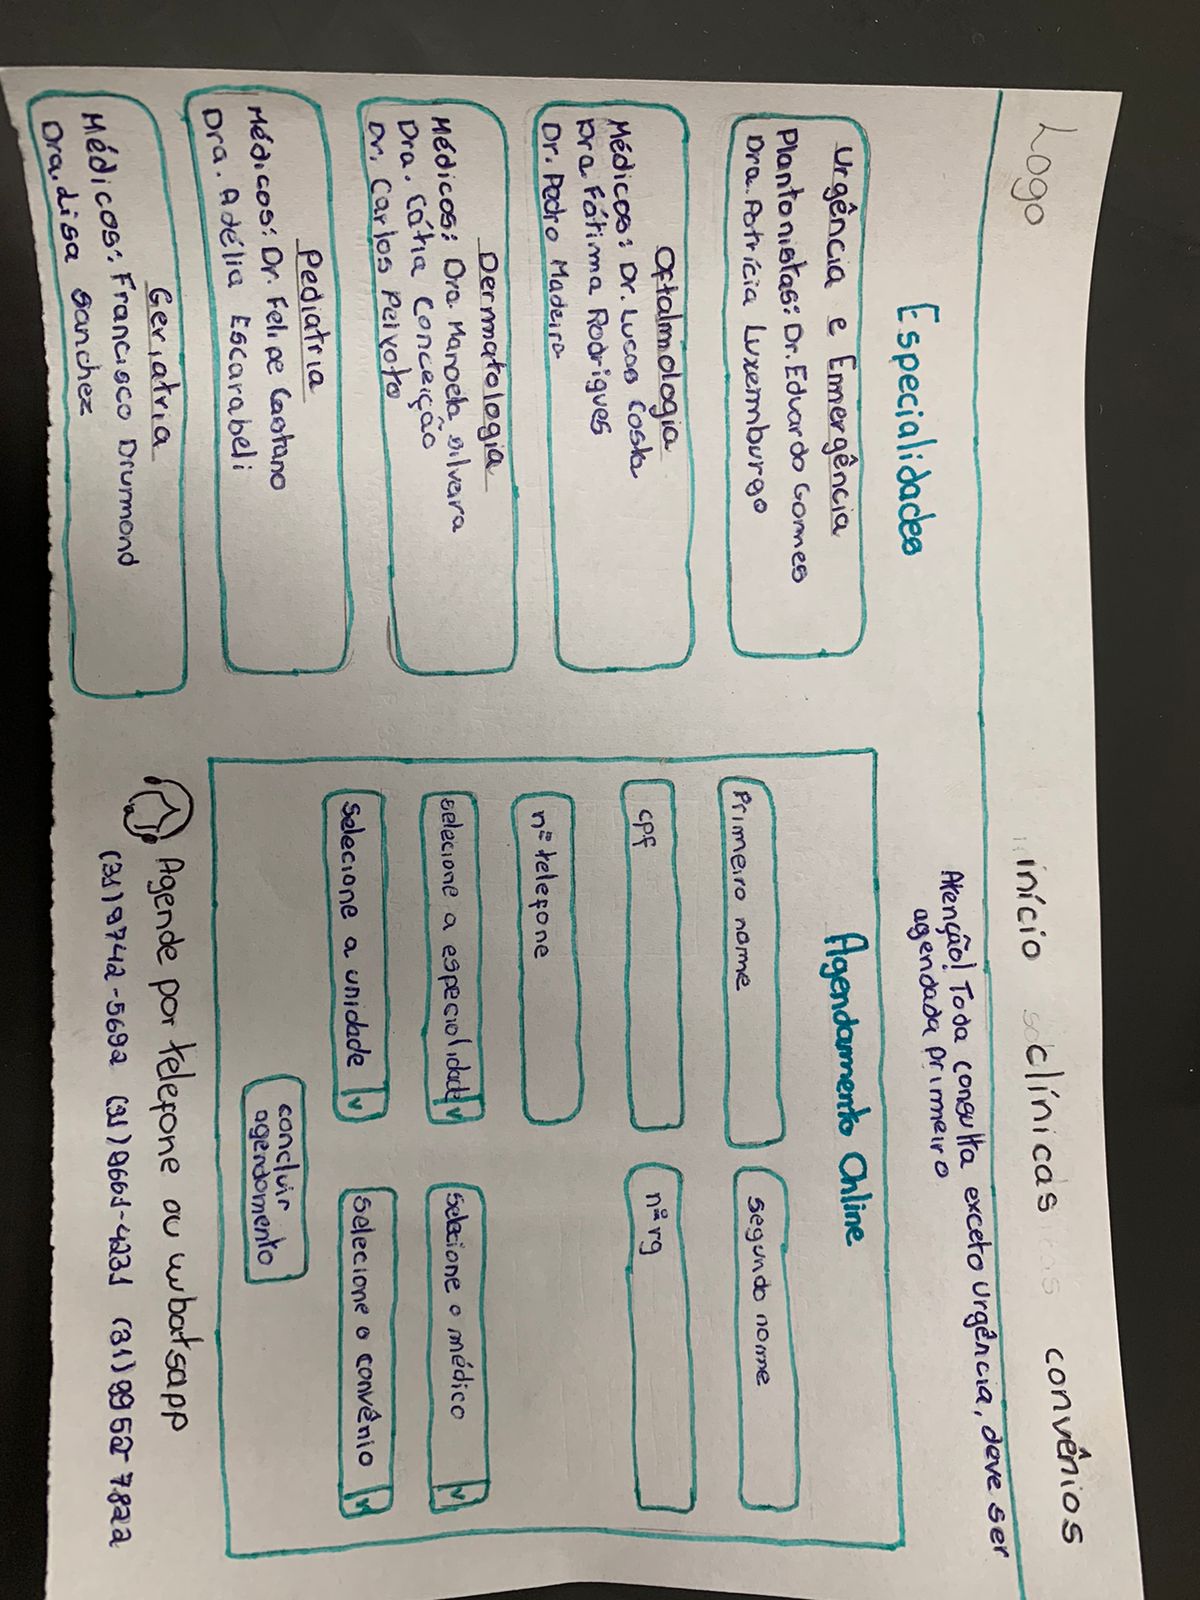 Logo
início clínicas convênios
Especialidades
Urgência e Emergência
Plantonistas: Dr. Eduardo Gomes
Dra. Patrícia Luxemburgo
Oftalmologia
Médicos: Dr. Lucas Costa
Dra Fátima Rodrigues
Dr. Pedro Madeira
Dermatologia
Médicos: Dra. Manoela silveira
Dra. Cátia Conceição
Dr. Carlos Peixoto
Pediatria
Médicos: Dr. Felipe Caetano
Dra. Adélia Escarabeli
Geriatria
Médicos: Francisco Drummond
Dra. Lisa Sanchez
Atenção! Toda consulta exceto urgência, deve ser
agendada primeiro
Agendamento Online
Primeiro nome
Segundo nome
cpf
nº rg
nº telefone
selecione a especialidade
selecione o médico
selecione a unidade
selecione o convênio
concluir
agendamento
Agende por telefone ou whatsapp
(31) 9742-5692 (31) 9661-4231 (31) 9952-7822